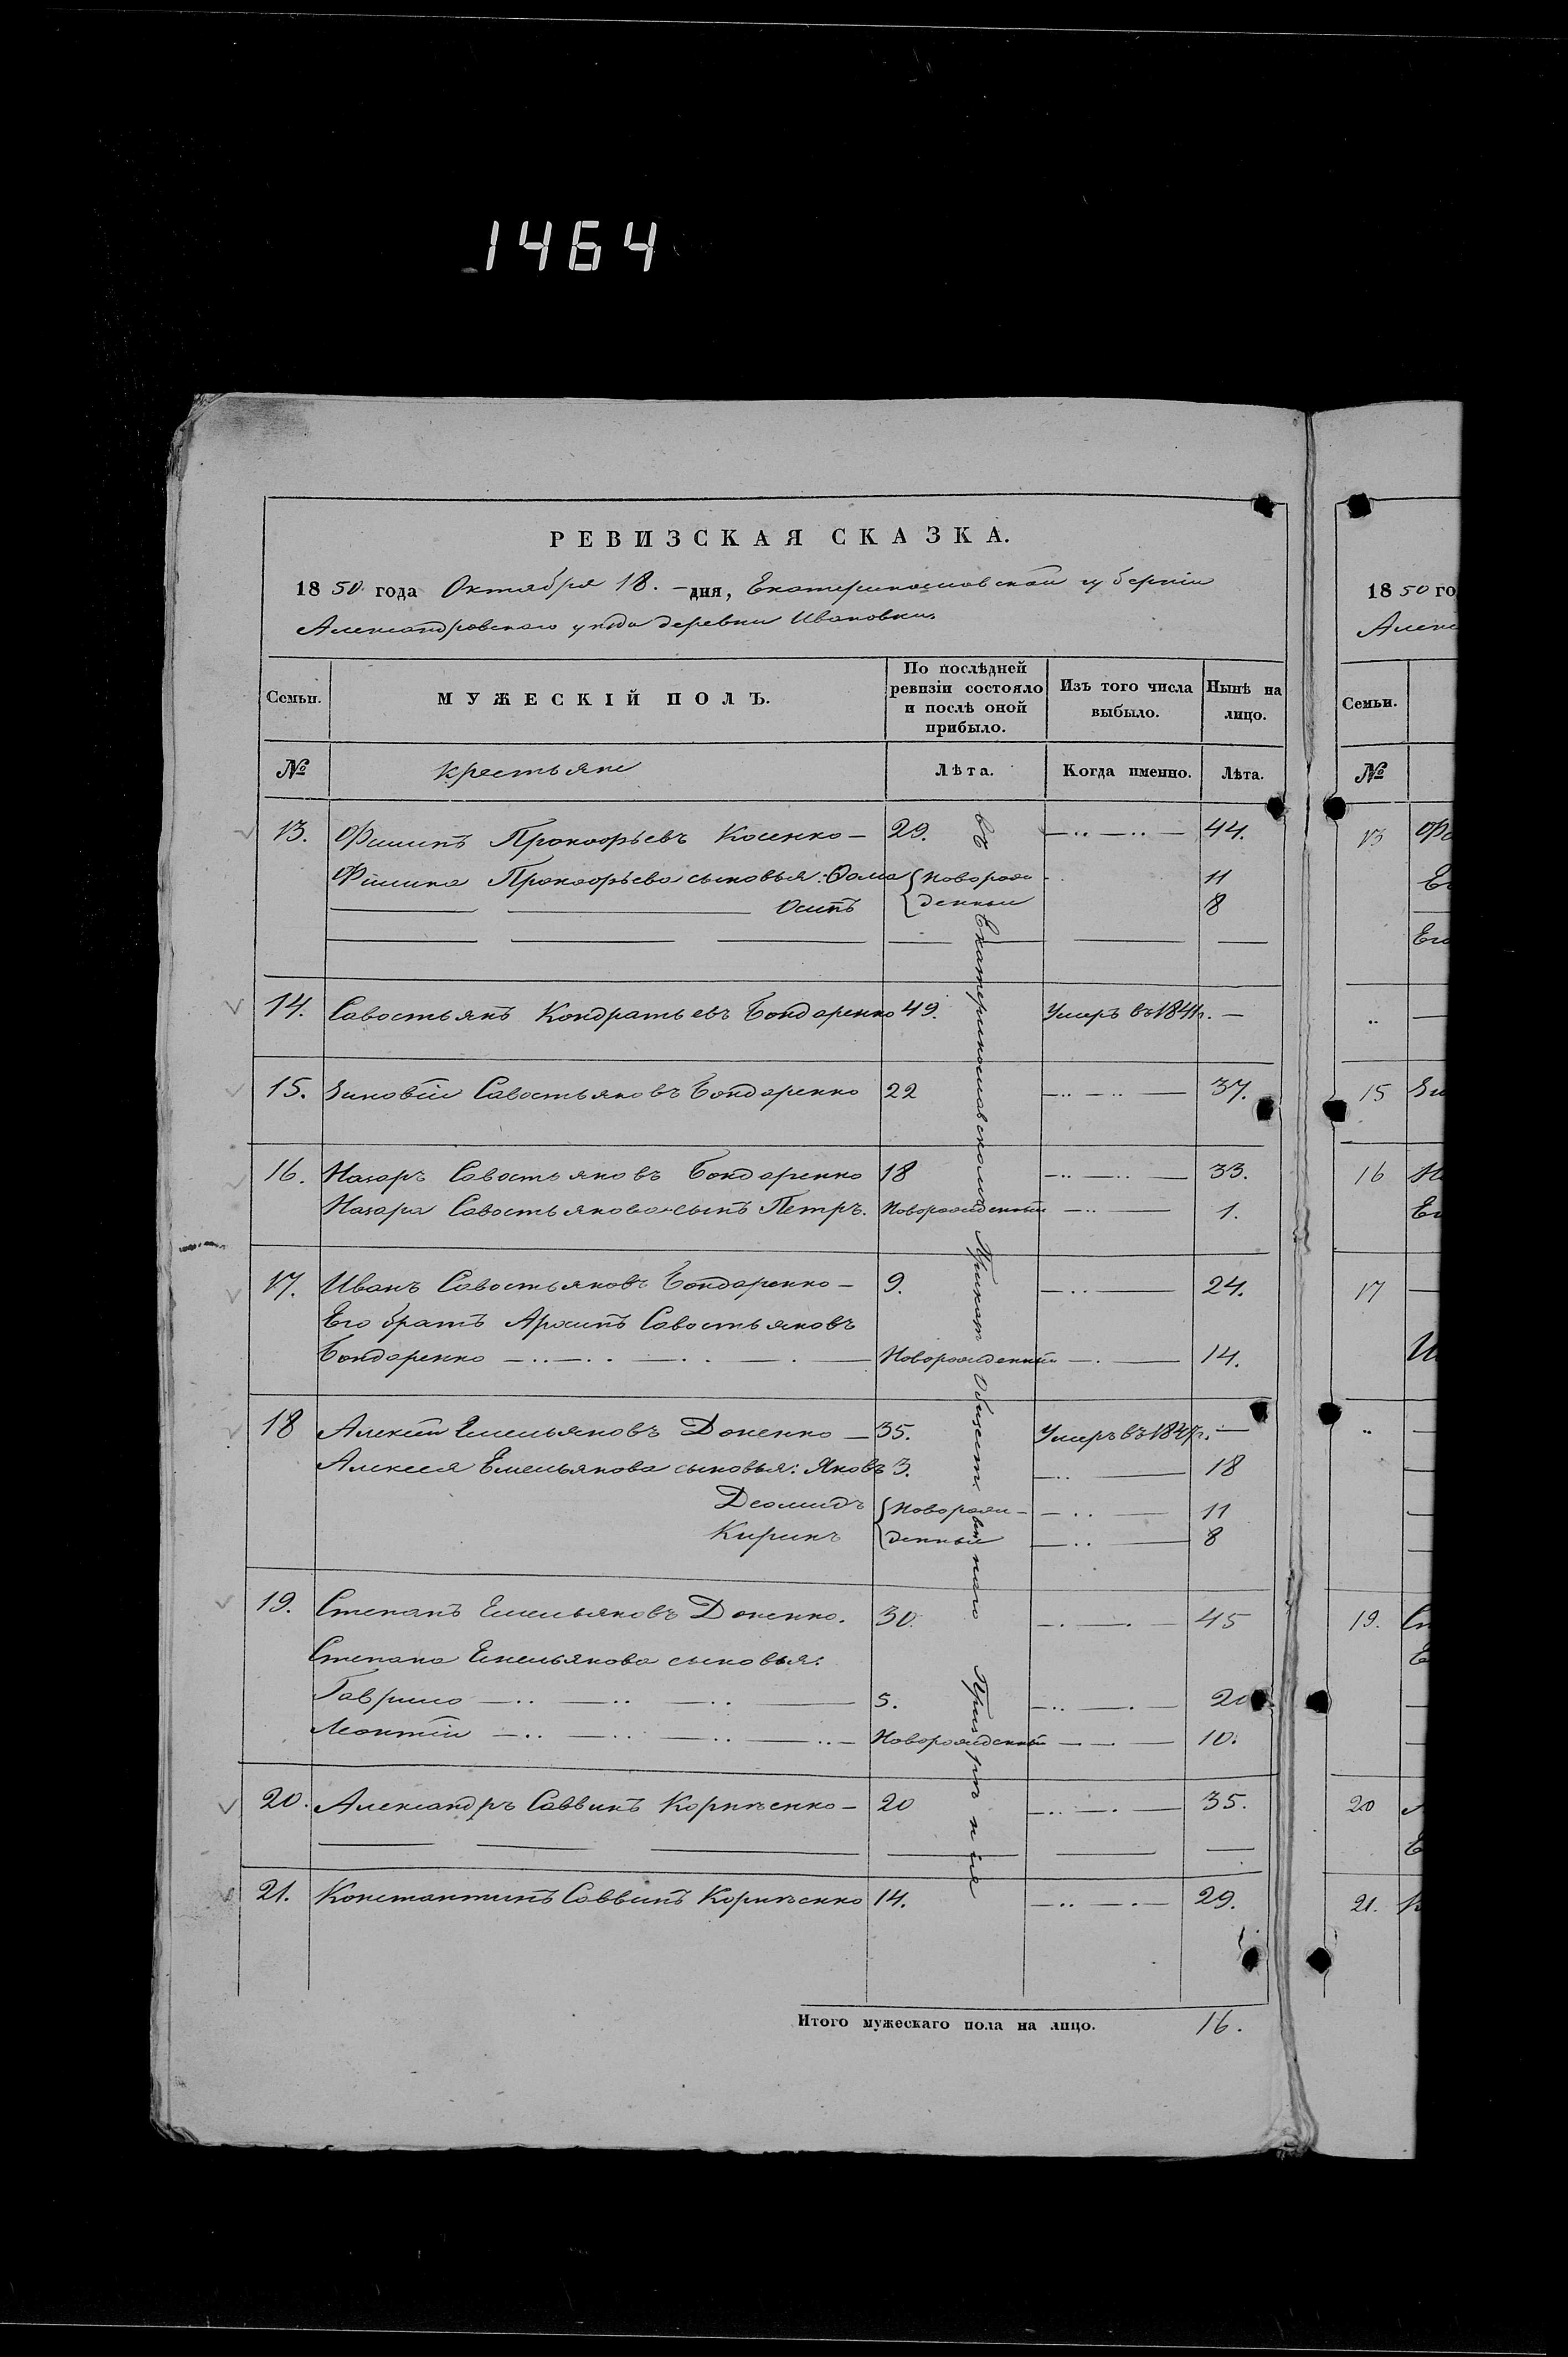 1464
РЕВИЗСКАЯ СКАЗКА.
1850 года Октября 18. - дня, Екатеринославской губерніи
Александровскаго уѣзда деревни Ивановки.
Семьи. МУЖЕСКІЙ ПОЛЪ. По послѣдней ревизіи состояло и послѣ оной прибыло. Изъ того числа выбыло. Нынѣ на лицо.
№ Крестьяне Лѣта. Когда именно. Лѣта.
13. Филипъ Прокофьевъ Косенко — 29. 44.
Филипа Прокофьева сыновья: Фома { новорож- 11
Осипъ { денные 8
14. Савостьянъ Кондратьевъ Бондаренко 49. Умеръ въ 1841г. —
15. Зиновій Савостьяновъ Бондаренко 22 37.
16. Назаръ Савостьяновъ Бондаренко 18 33.
Назара Савостьянова сынъ Петръ. Новорожденный 1.
17. Иванъ Савостьяновъ Бондаренко — 9. 24.
Его братъ Архипъ Савостьяновъ
Бондаренко Новорожденный 14.
18 Алексей Емельяновъ Доненко — 35. Умеръ въ 1847г. —
Алексея Емельянова сыновья: Яковъ 3. 18
Деомидъ { Новорож- 11
Кирикъ { денные 8
19. Степанъ Емельяновъ Доненко. 30. 45
Степана Емельянова сыновья:
Гаврило 5. 20
Леонтій Новорожденный 10.
20. Александръ Саввинъ Корнѣенко — 20 35.
21. Константинъ Саввинъ Корнѣенко 14. 29.
Итого мужескаго пола на лицо. 16.
въ Екатеринославскомъ Приказѣ Общественнаго Призрѣнія
1850 го
Алекс
Семьи.
№
13 Фи
Ег
Его
15 Зи
16 На
Ег
17
И
19. Ст
Е
20
Е
21. К